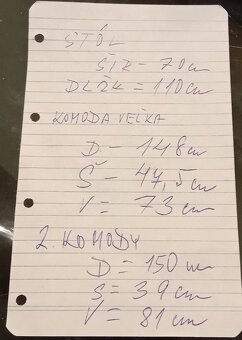 STÔL
ŠÍR = 70 cm
DLŽK = 110 cm
KOMODA VEĽKÁ
D. = 148 cm
Š = 47,5 cm
V = 73 cm
2. KOMODY
D = 150 m
S = 39 cm
V = 81 cm